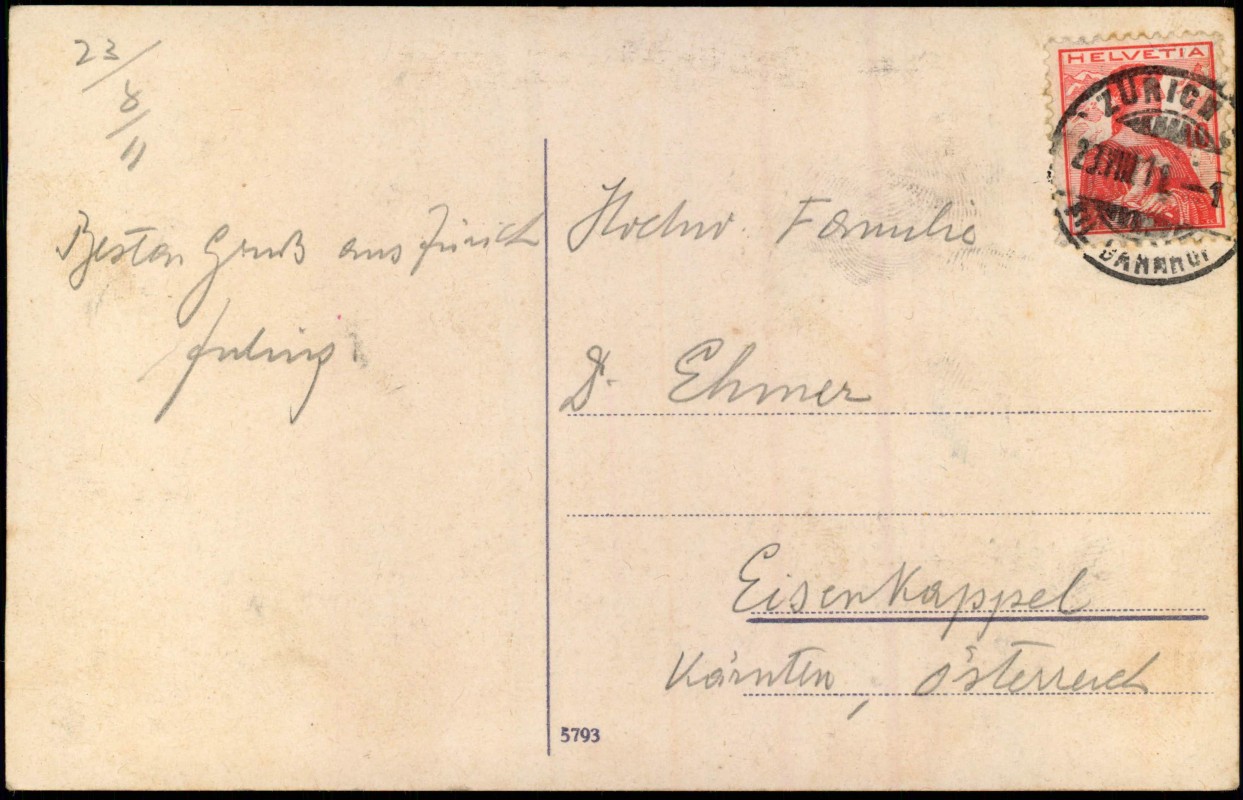 23/
8/
11
Besten Gruß aus Zürich
HELVETIA
ZÜRICH
BAHNHOF
Hochw. Familie
Dr. Ehmer
Eisenkappel
Kärnten, Österreich
5793